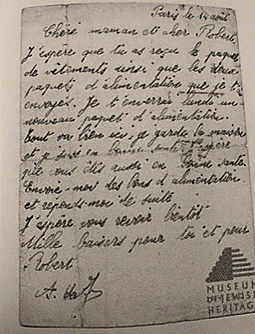 Paris le 14 août
Chère maman et cher Robert,
J'espère que tu as reçu le paquet
de vêtements ainsi que les deux
paquets d'alimentation que je t'ai
envoyés. Je t'enverrai lundi un
nouveau paquet d'alimentation.
Tout va bien ici, je garde la maison
et je suis en bonne santé. J'espère
que vous êtes aussi en bonne santé.
Envoie-moi des bons d'alimentation
et réponds-moi de suite.
J'espère vous revoir bientôt
Mille baisers pour toi et pour
Robert
A.
MUSEUM
OF JEWISH
HERITAGE